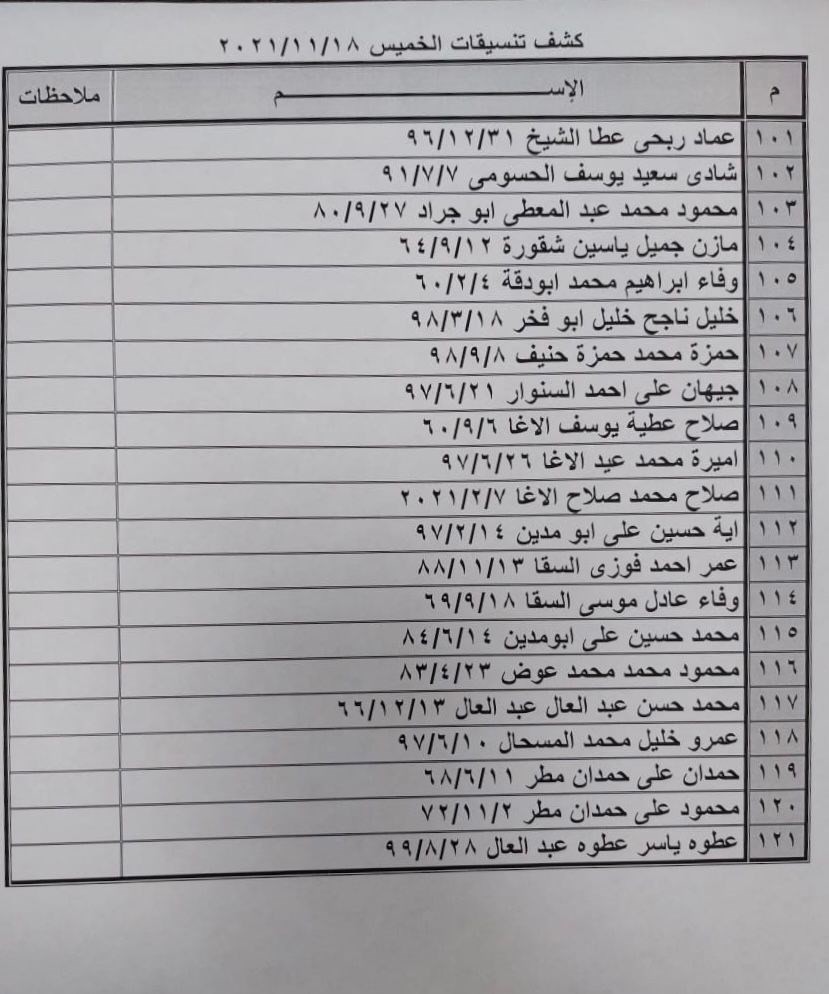 كشف تنسيقات الخميس ٢٠٢١/١١/١٨
م الإســـــــــم ملاحظات
١٠١ عماد ربحى عطا الشيخ ٩٦/١٢/٣١
١٠٢ شادى سعيد يوسف الحسومى ٩١/٧/٧
١٠٣ محمود محمد عبد المعطى ابو جراد ٨٠/٩/٢٧
١٠٤ مازن جميل ياسين شقورة ٦٤/٩/١٢
١٠٥ وفاء ابراهيم محمد ابودقة ٦٠/٢/٤
١٠٦ خليل ناجح خليل ابو فخر ٩٨/٣/١٨
١٠٧ حمزة محمد حمزة حنيف ٩٨/٩/٨
١٠٨ جيهان على احمد السنوار ٩٧/٦/٢١
١٠٩ صلاح عطية يوسف الاغا ٦٠/٩/٦
١١٠ اميرة محمد عيد الاغا ٩٧/٦/٢٦
١١١ صلاح محمد صلاح الاغا ٢٠٢١/٢/٧
١١٢ اية حسين على ابو مدين ٩٧/٢/١٤
١١٣ عمر احمد فوزى السقا ٨٨/١١/١٣
١١٤ وفاء عادل موسى السقا ٦٩/٩/١٨
١١٥ محمد حسين على ابومدين ٨٤/٦/١٤
١١٦ محمود محمد محمد عوض ٨٣/٤/٢٣
١١٧ محمد حسن عبد العال عبد العال ٦٦/١٢/١٣
١١٨ عمرو خليل محمد المسحال ٩٧/٦/١٠
١١٩ حمدان على حمدان مطر ٦٨/٦/١١
١٢٠ محمود على حمدان مطر ٧٢/١١/٢
١٢١ عطوه ياسر عطوه عبد العال ٩٩/٨/٢٨